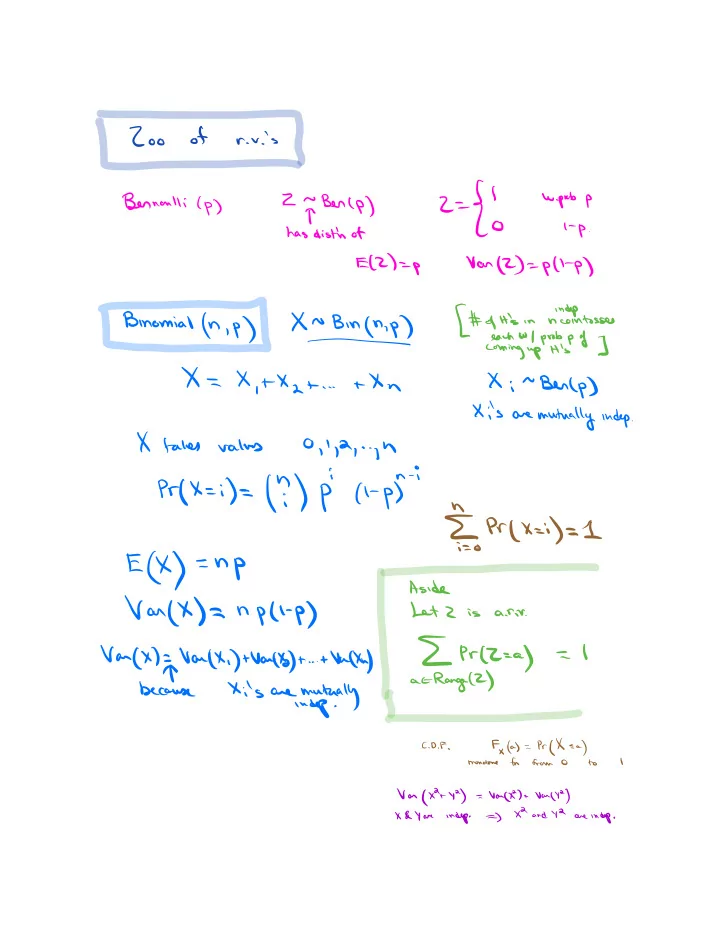 Zoo of r.v.'s
Bernoulli (p) Z ~ Ber(p) Z = { 1 w.prob p
0 1-p
↑
has distn of
E(Z) = p Var(Z) = p(1-p)
Binomial (n,p) X ~ Bin(n,p)
[# of H's in n indep cointosses
each w/ prob p of
coming up H's]
X = X₁ + X₂ + ... + Xn Xi ~ Ber(p)
Xi's are mutually indep.
X takes values 0,1,2,..,n
Pr(X=i) = (n i) p^i (1-p)^{n-i}
∑_{i=0}^{n} Pr(X=i) = 1
E(X) = np
Var(X) = np(1-p)
Var(X) = Var(X₁) + Var(X₂) + ... + Var(Xn)
↑
because Xi's are mutually
indep.
Aside
Let Z is a.r.v.
∑_{a∈Range(Z)} Pr(Z=a) = 1
C.D.F. F_X(a) = Pr(X ≤ a)
monotone fn from 0 to 1
Var(X²+Y²) = Var(X²) + Var(Y²)
X & Y are indep. ⇒ X² and Y² are indep.